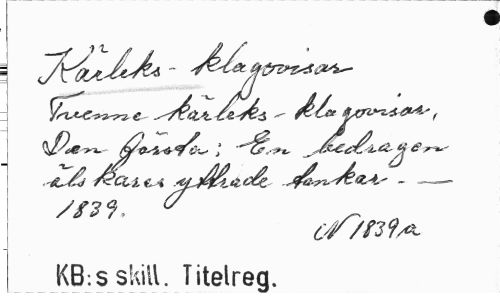 Kärleks-klagovisor
Tvenne kärleks-klagovisor,
Den första: En bedragen
älskares yttrade tankar. —
1839.
N 1839a
KB:s skill. Titelreg.